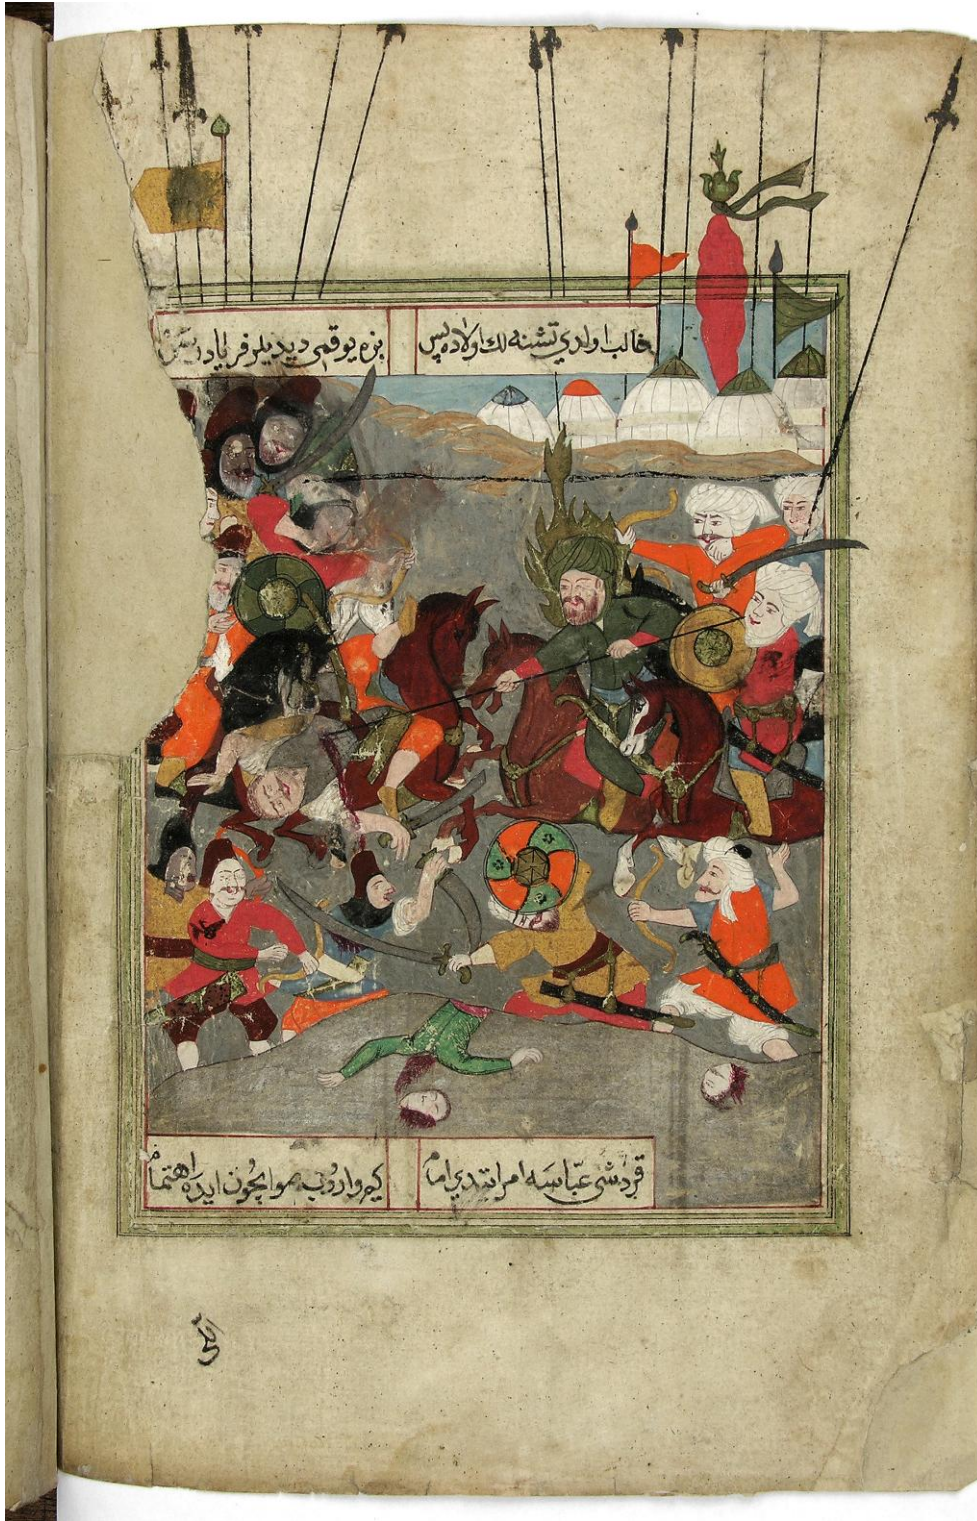 غالب اولدي تشنه لك اولاده پس بزه يوقمى ديديلر فرياد
قرداشى عبّاسه امر ايتدي امام كيم واروب صو ايچون ايده اهتمام